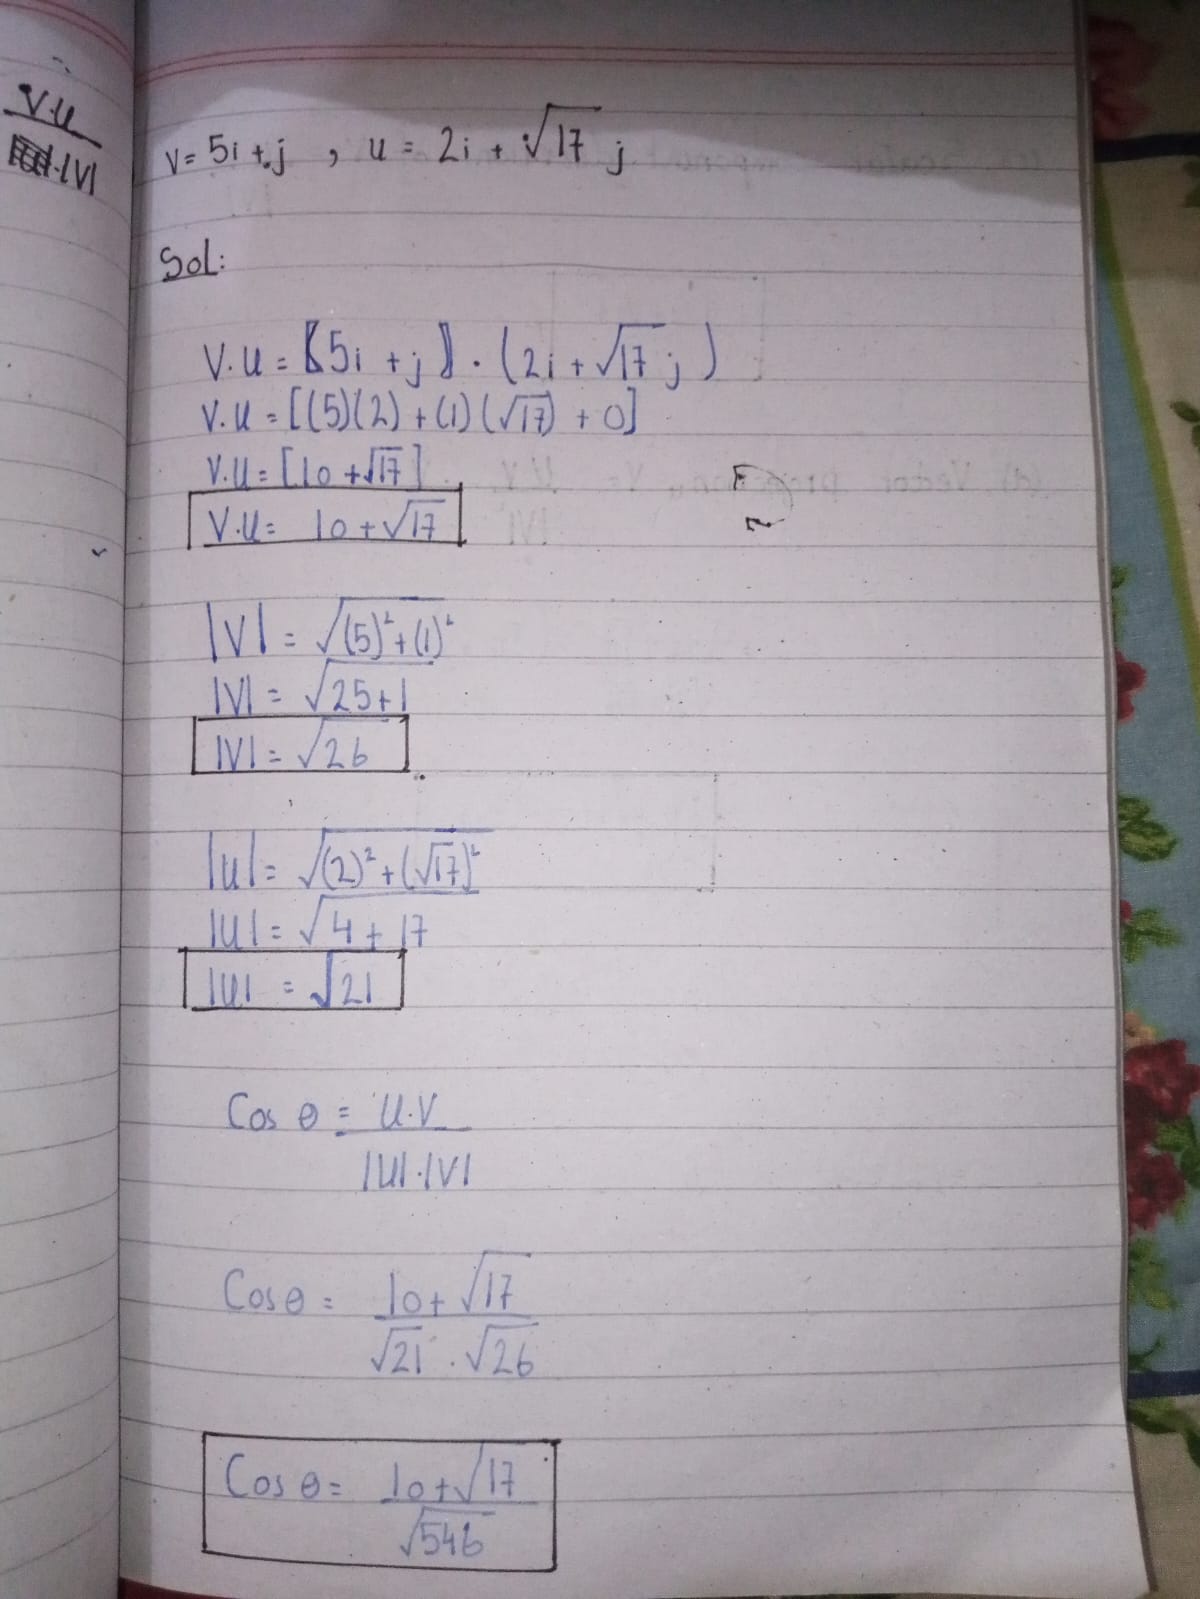 V.U
|V|
V= 5i + j , u = 2i + √17 j
Sol:
V.U = [5i + j] . (2i + √17 j)
V.U = [(5)(2) + (1)(√17) + 0]
V.U = [10 + √17]
V.U = 10 + √17
|V| = √(5)² + (1)²
|V| = √25+1
|V| = √26
|U| = √(2)² + (√17)²
|U| = √4 + 17
|U| = √21
Cos θ = U.V
|U|.|V|
Cos θ = 10 + √17
√21 . √26
Cos θ = 10 + √17
√546